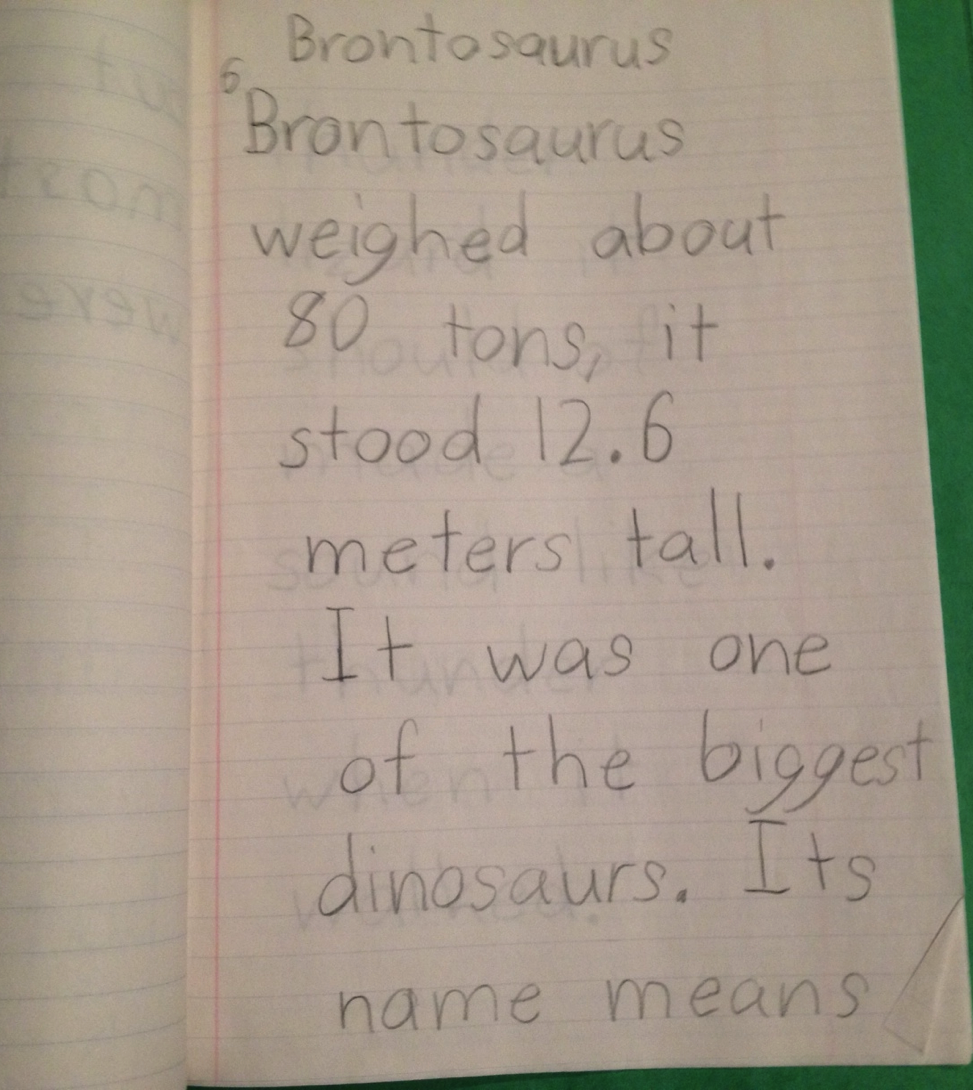 Brontosaurus
6
Brontosaurus
weighed about
80 tons, it
stood 12.6
meters tall.
It was one
of the biggest
dinosaurs. Its
name means